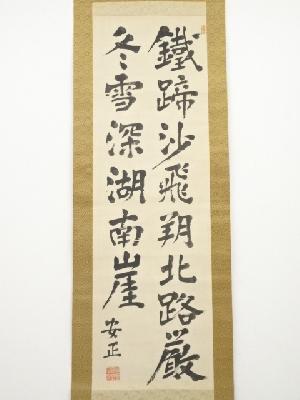 鐵蹄沙飛朔北路嚴
冬雪深湖南崖
安正